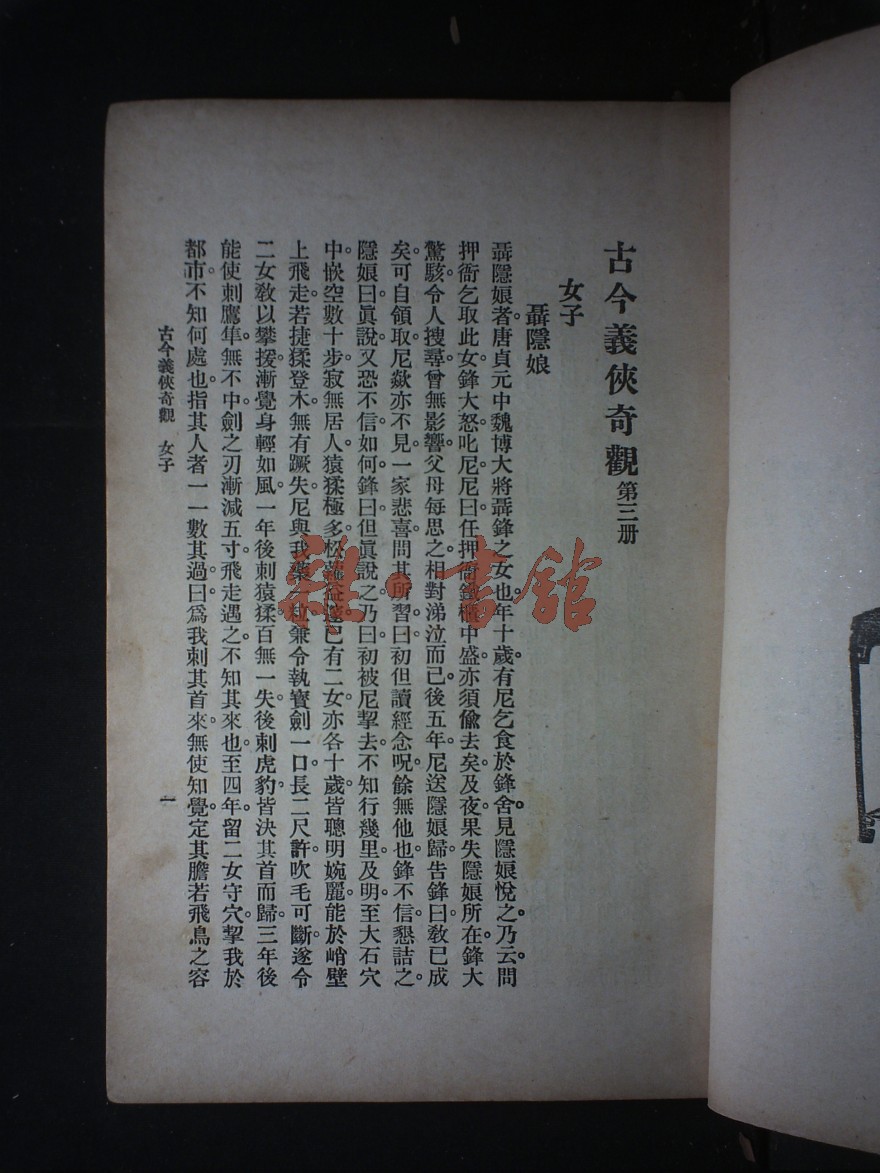 古今義俠奇觀 第三册
女子
聶隱娘
聶隱娘者。唐貞元中魏博大將聶鋒之女也。年十歲。有尼乞食於鋒舍。見隱娘悅之。乃云。問
押衙乞取此女。鋒大怒叱尼。尼曰。任押衙鐵櫃中盛。亦須偸去矣。及夜。果失隱娘所在。鋒大
驚駭。令人搜尋。曾無影響。父母每思之。相對涕泣而已。後五年。尼送隱娘歸。告鋒曰。敎已成
矣。可自領取。尼歘亦不見。一家悲喜。問其所習。曰。初但讀經念呪。餘無他也。鋒不信。懇詰之。
隱娘曰。眞說又恐不信。如何。鋒曰。但眞說之。乃曰。初被尼挈去。不知行幾里。及明。至大石穴
中。嵌空數十步。寂無居人。猿猱極多。松蘿益邃。已有二女。亦各十歲。皆聰明婉麗。能於峭壁
上飛走。若捷猱登木。無有蹶失。尼與我藥一粒。兼令執寶劍一口。長二尺許。吹毛可斷。遂令
二女敎以攀援。漸覺身輕如風。一年後。刺猿猱百無一失。後刺虎豹。皆決其首而歸。三年後
能使刺鷹隼。無不中。劍之刃漸減五寸。飛走遇之。不知其來也。至四年。留二女守穴。挈我於
都市。不知何處也。指其人者。一一數其過。曰。爲我刺其首來。無使知覺。定其膽。若飛鳥之容
古今義俠奇觀 女子
一
雜·書館